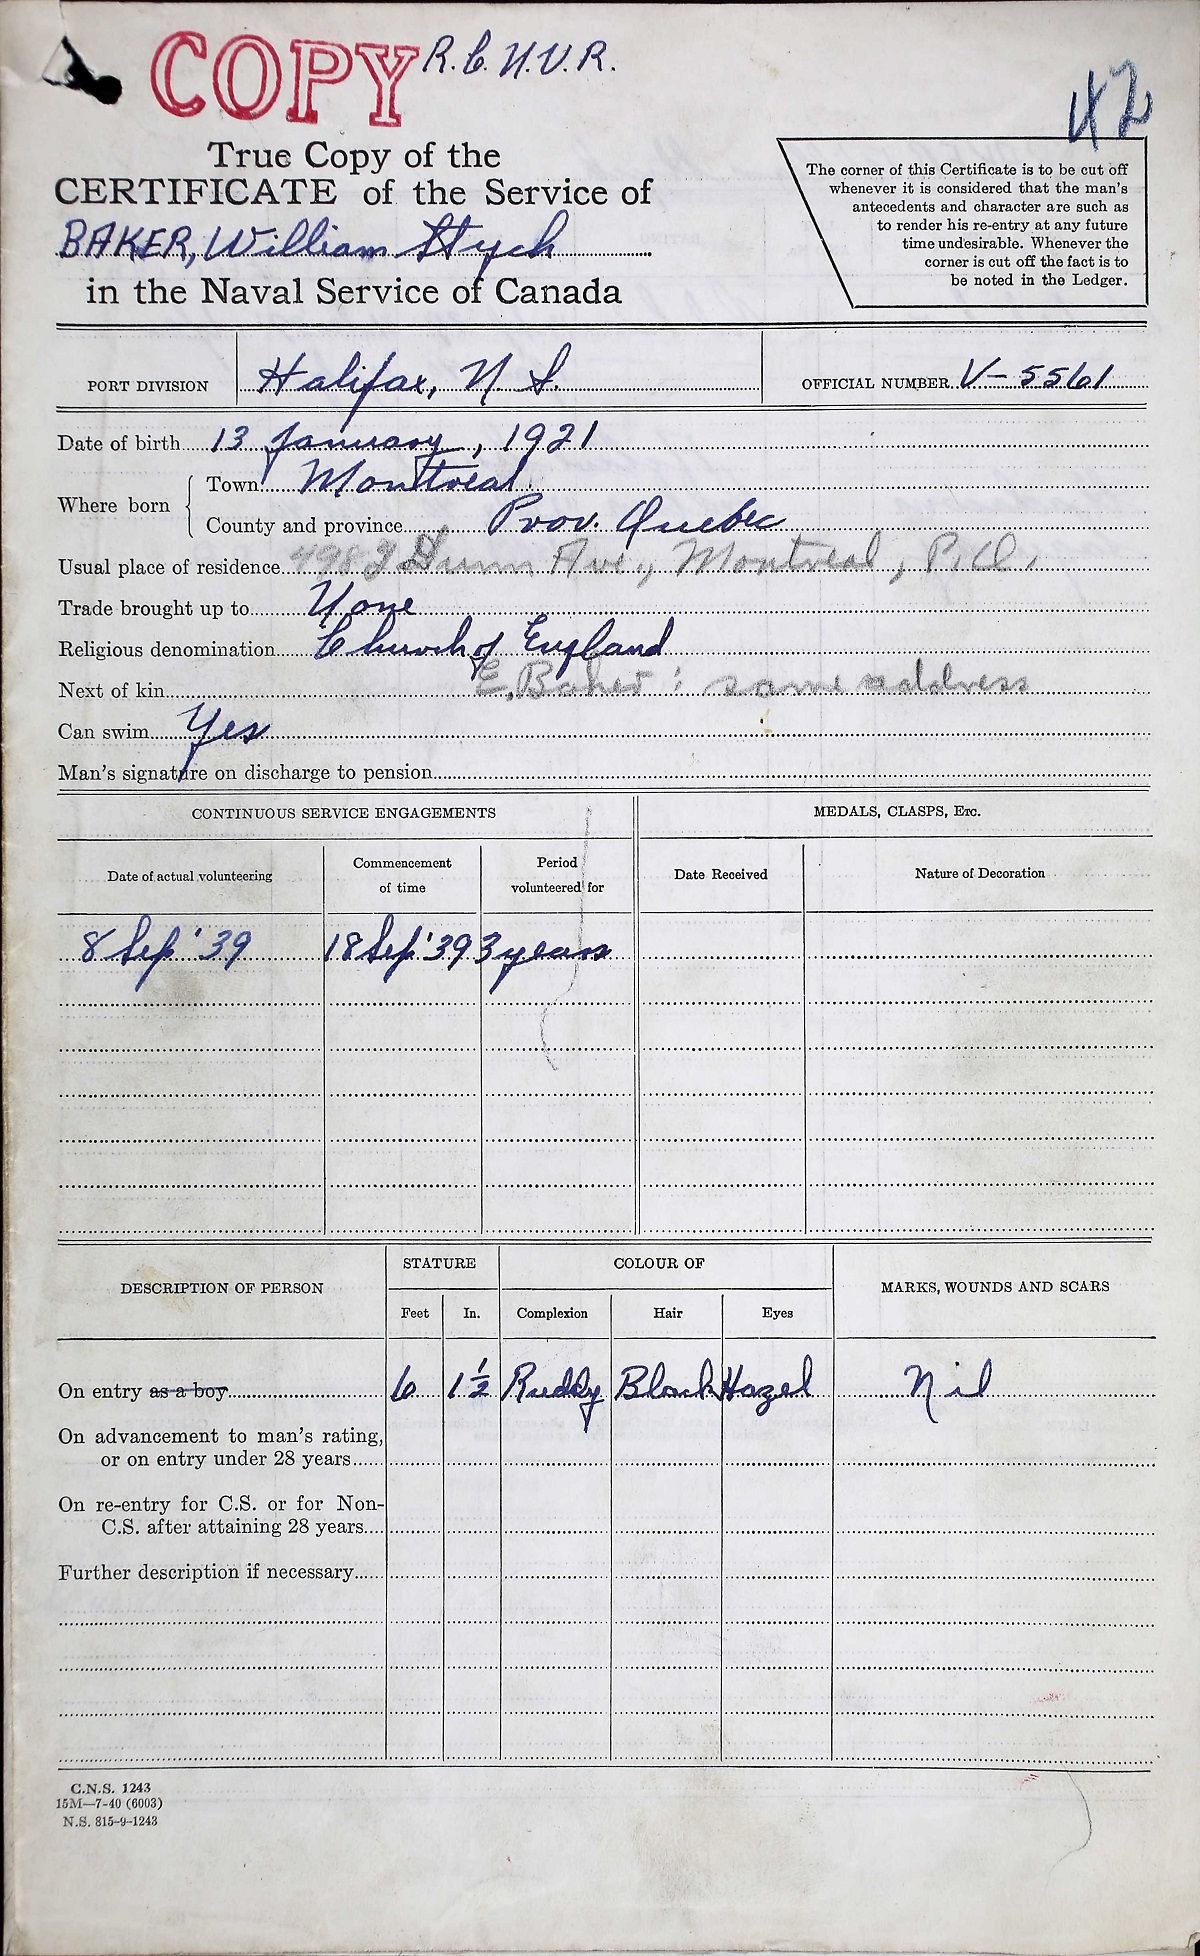 COPY R.C.N.V.R.
42
True Copy of the
CERTIFICATE of the Service of
BAKER, William Stych
in the Naval Service of Canada
The corner of this Certificate is to be cut off
whenever it is considered that the man's
antecedents and character are such as
to render his re-entry at any future
time undesirable. Whenever the
corner is cut off the fact is to
be noted in the Ledger.
PORT DIVISION Halifax, N S. OFFICIAL NUMBER V-5561
Date of birth 13 January, 1921
Where born Town Montreal
County and province Prov. Quebec
Usual place of residence Ave., Montreal, P.Q.
Trade brought up to None
Religious denomination Church of England
Next of kin E. Baker : same address
Can swim Yes
Man's signature on discharge to pension
CONTINUOUS SERVICE ENGAGEMENTS MEDALS, CLASPS, Etc.
Date of actual volunteering Commencement of time Period volunteered for Date Received Nature of Decoration
8 Sep' 39 18 Sep' 39 3 years
DESCRIPTION OF PERSON STATURE COLOUR OF MARKS, WOUNDS AND SCARS
Feet In. Complexion Hair Eyes
On entry as a boy 6 1 1/2 Ruddy Black Hazel Nil
On advancement to man's rating,
or on entry under 28 years
On re-entry for C.S. or for Non-
C.S. after attaining 28 years
Further description if necessary
C.N.S. 1243
15M—7-40 (6003)
N.S. 815-9-1243